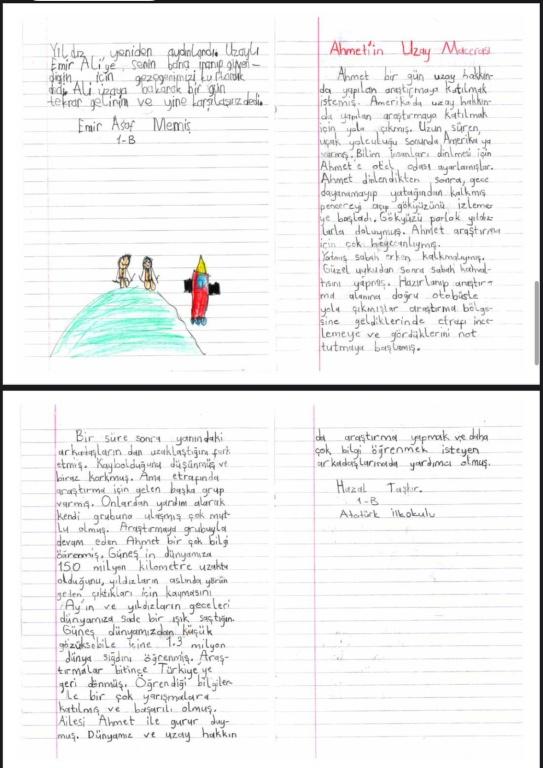 Yıldız yeniden aydınlandı. Uzaylı
Emir Ali'ye senin bana inanıp güven-
diğin için gezegenimizi kurtardık
dedi. Ali uzaya bakarak bir gün
tekrar gelirim ve yine karşılaşırız dedi.
Emir Asaf Memiş
1-B
Ahmet'in Uzay Macerası
Ahmet bir gün uzay hakkın-
da yapılan araştırmaya katılmak
istemiş. Amerikada uzay hakkın-
da yapılan araştırmaya katılmak
için yola çıkmış. Uzun süren,
uçak yolculuğu sonunda Amerika'ya
varmış. Bilim insanları dinlmesi için
Ahmet'e otel odası ayarlamışlar.
Ahmet dinlendikten sonra, gece
dayanamayıp yatağından kalkmış
pencereyi açıp gökyüzünü izleme-
ye başladı. Gökyüzü parlak yıldız-
larla doluymuş. Ahmet araştırma
için çok heyecanlıymış.
Yatmış sabah erken kalkmalıymış.
Güzel uykudan sonra sabah kahval-
tısını yapmış. Hazırlanıp araştır-
ma alanına doğru otobüsle
yola çıkmışlar araştırma bölge-
sine geldiklerinde etrafı ince-
lemeye ve gördüklerini not
tutmaya başlamış.
Bir süre sonra yanındaki
arkadaşların dan uzaklaştığını fark
etmiş. Kaybolduğunu düşünmüş ve
biraz korkmuş. Ama etrafında
araştırma için gelen başka grup
varmış. Onlardan yardım alarak
kendi grubuna ulaşmış çok mut-
lu olmuş. Araştırmaya grubuyla
devam eden Ahmet bir çok bilgi
öğrenmiş. Güneş'in dünyamıza
150 milyon kilometre uzakta
olduğunu, yıldızların aslında yörün
geden çıktıkları için kaymasını
Ay'ın ve yıldızların geceleri
dünyamıza sade bir ışık saçtığın.
Güneş dünyamızdan küçük
gözüksebile içine 1.3 milyon
dünya sığdını öğrenmiş. Araş-
tırmalar bitince Türkiye'ye
geri dönmüş. Öğrendiği bilgiler-
le bir çok yarışmalara
katılmış ve başarılı olmuş.
Ailesi Ahmet ile gurur duy-
muş. Dünyamız ve uzay hakkın
da araştırma yapmak ve daha
çok bilgi öğrenmek isteyen
arkadaşlarınada yardımcı olmuş.
Hazal Taştır.
1-B
Atatürk ilkokulu